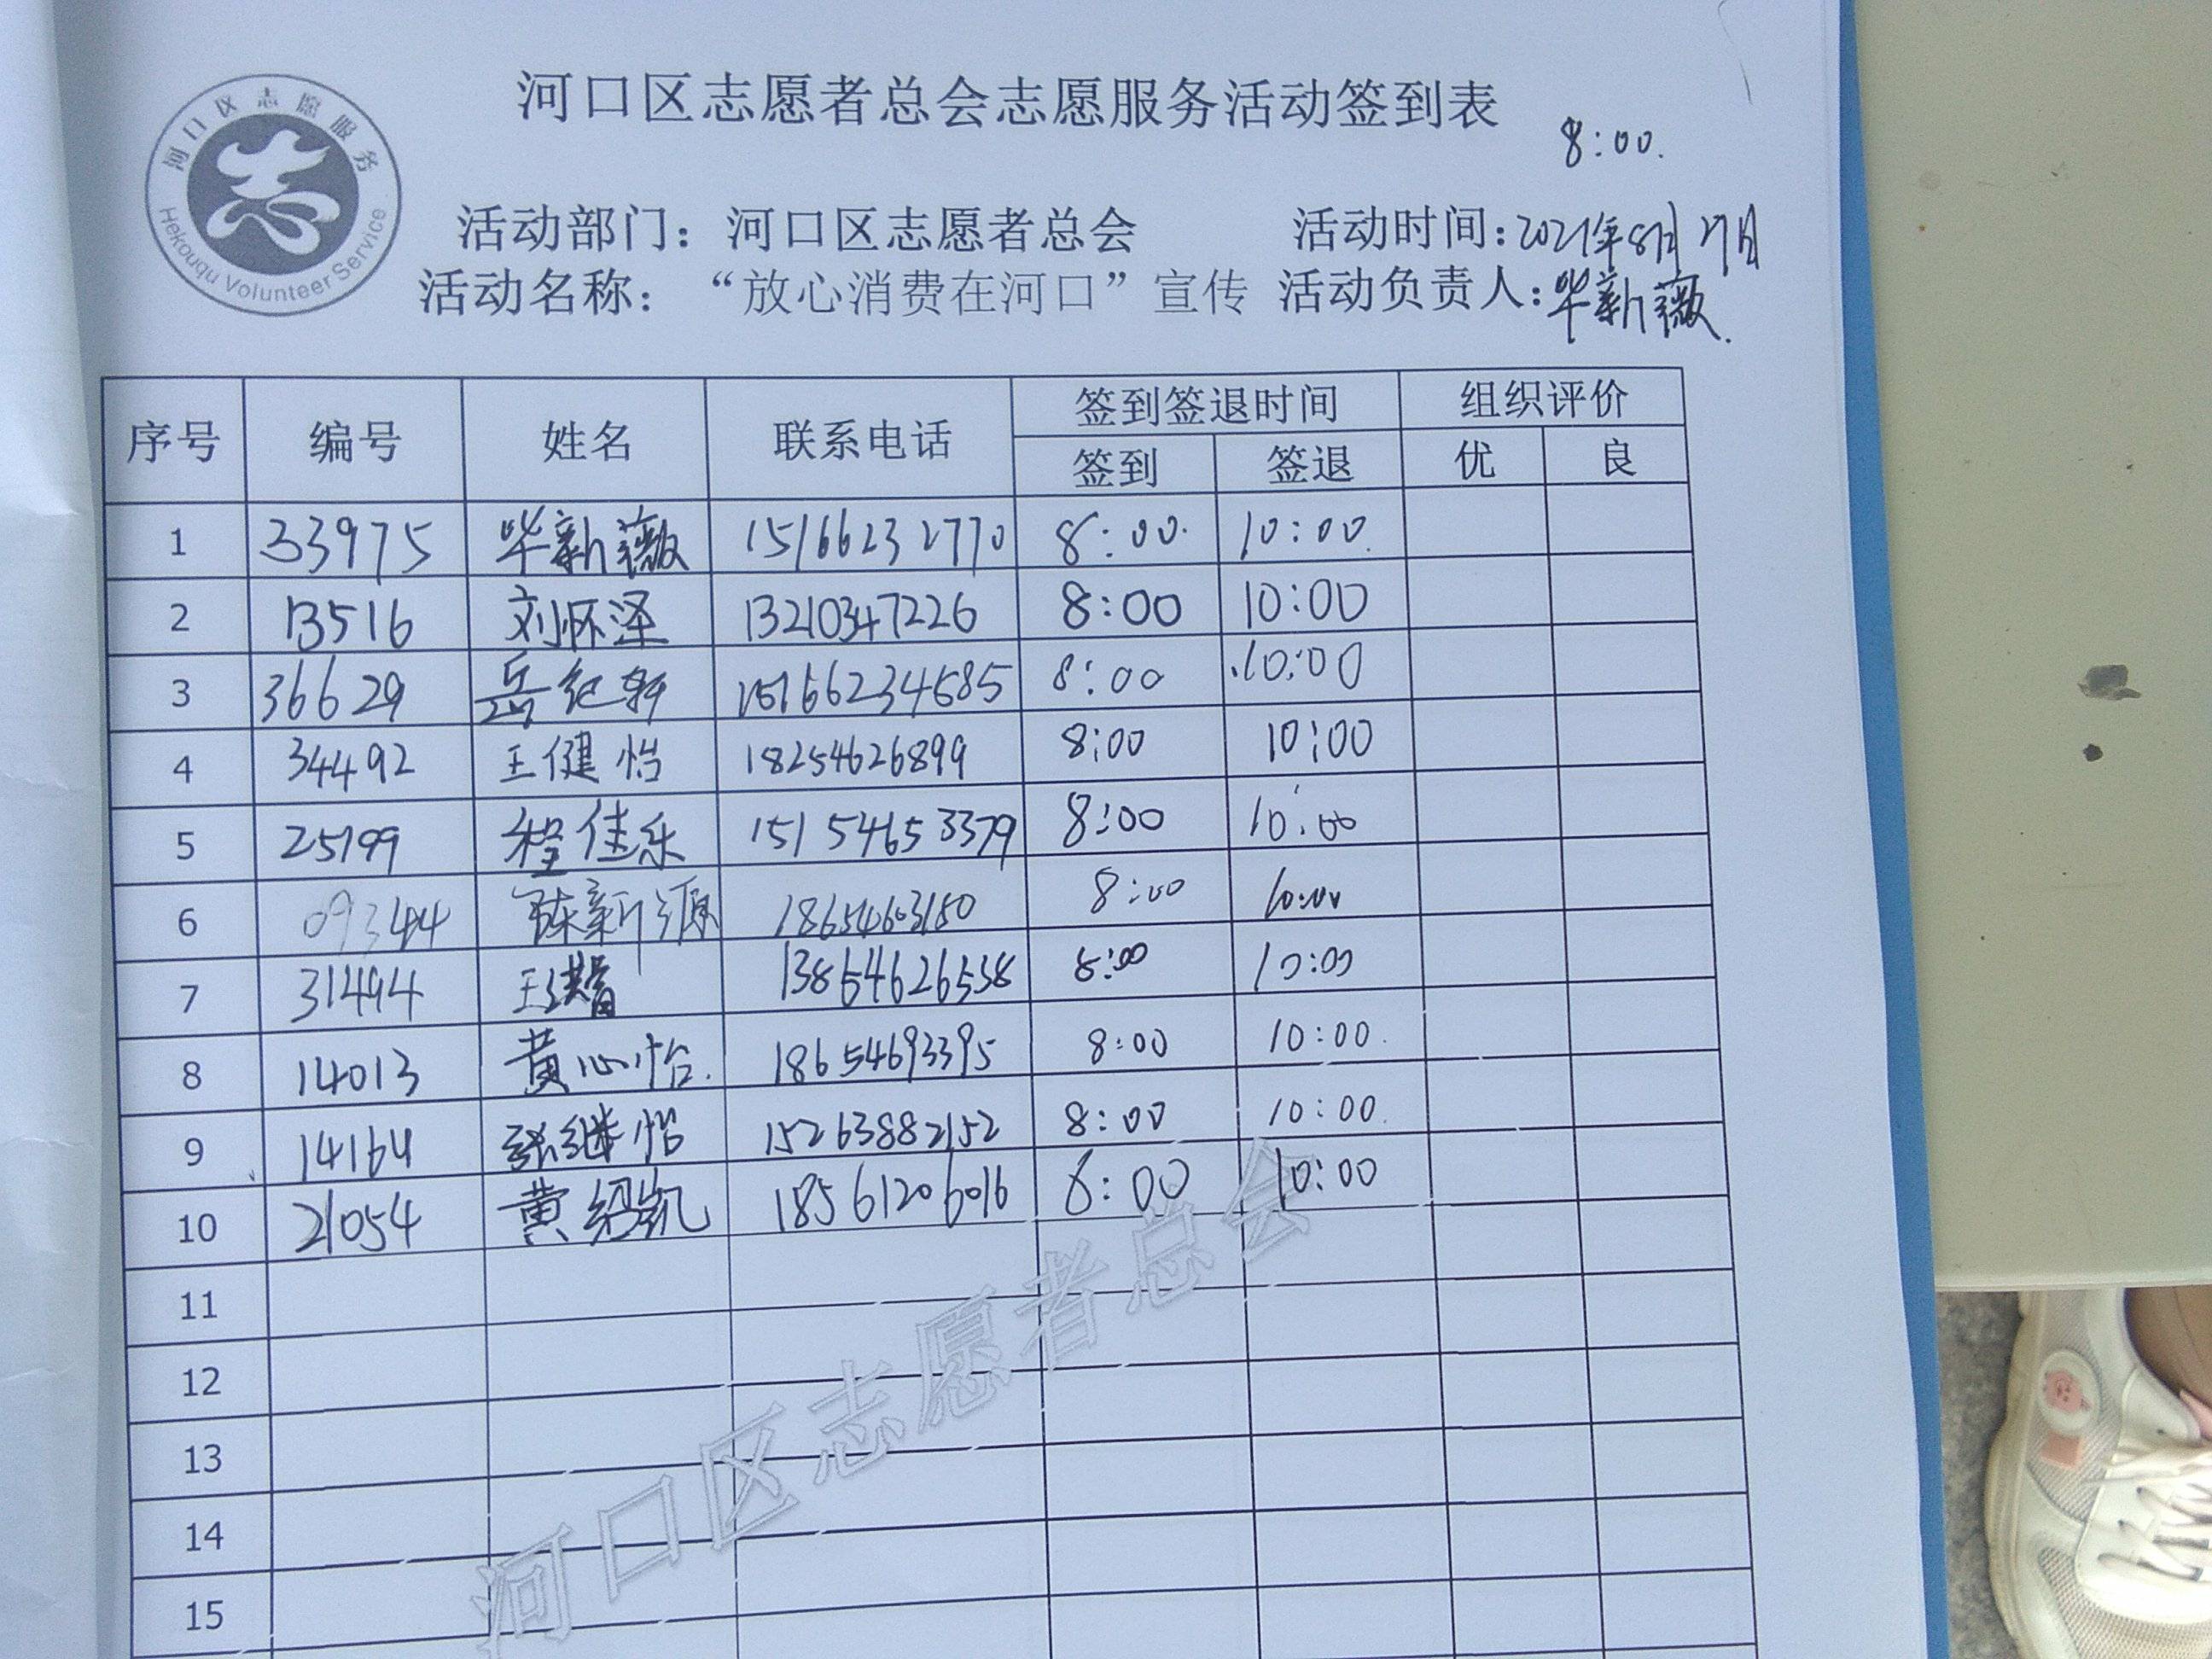 河口区志愿者总会志愿服务活动签到表
8:00.
河口区志愿服务
Hekouqu Volunteer Service
活动部门：河口区志愿者总会 活动时间：2021年8月27日
活动名称：“放心消费在河口”宣传 活动负责人：毕新薇.
序号 编号 姓名 联系电话 签到签退时间 组织评价
签到 签退 优 良
1 33975 毕新薇 15166232770 8:00. 10:00.
2 13516 刘怀泽 13210347226 8:00 10:00
3 36629 岳纪轩 15166234585 8:00 10:00
4 34492 王健怡 18254626899 8:00 10:00
5 25199 程佳乐 15154653379 8:00 10:00
6 093444 陈新源 18654603150 8:00 10:00
7 31494 13864626538 8:00 10:00
8 14013 黄心怡. 18654693395 8:00 10:00.
9 14164 张继怡 15263882152 8:00 10:00.
10 21054 黄绍凯 18561206016 8:00 10:00
11
12
13
14
15
河口区志愿者总会